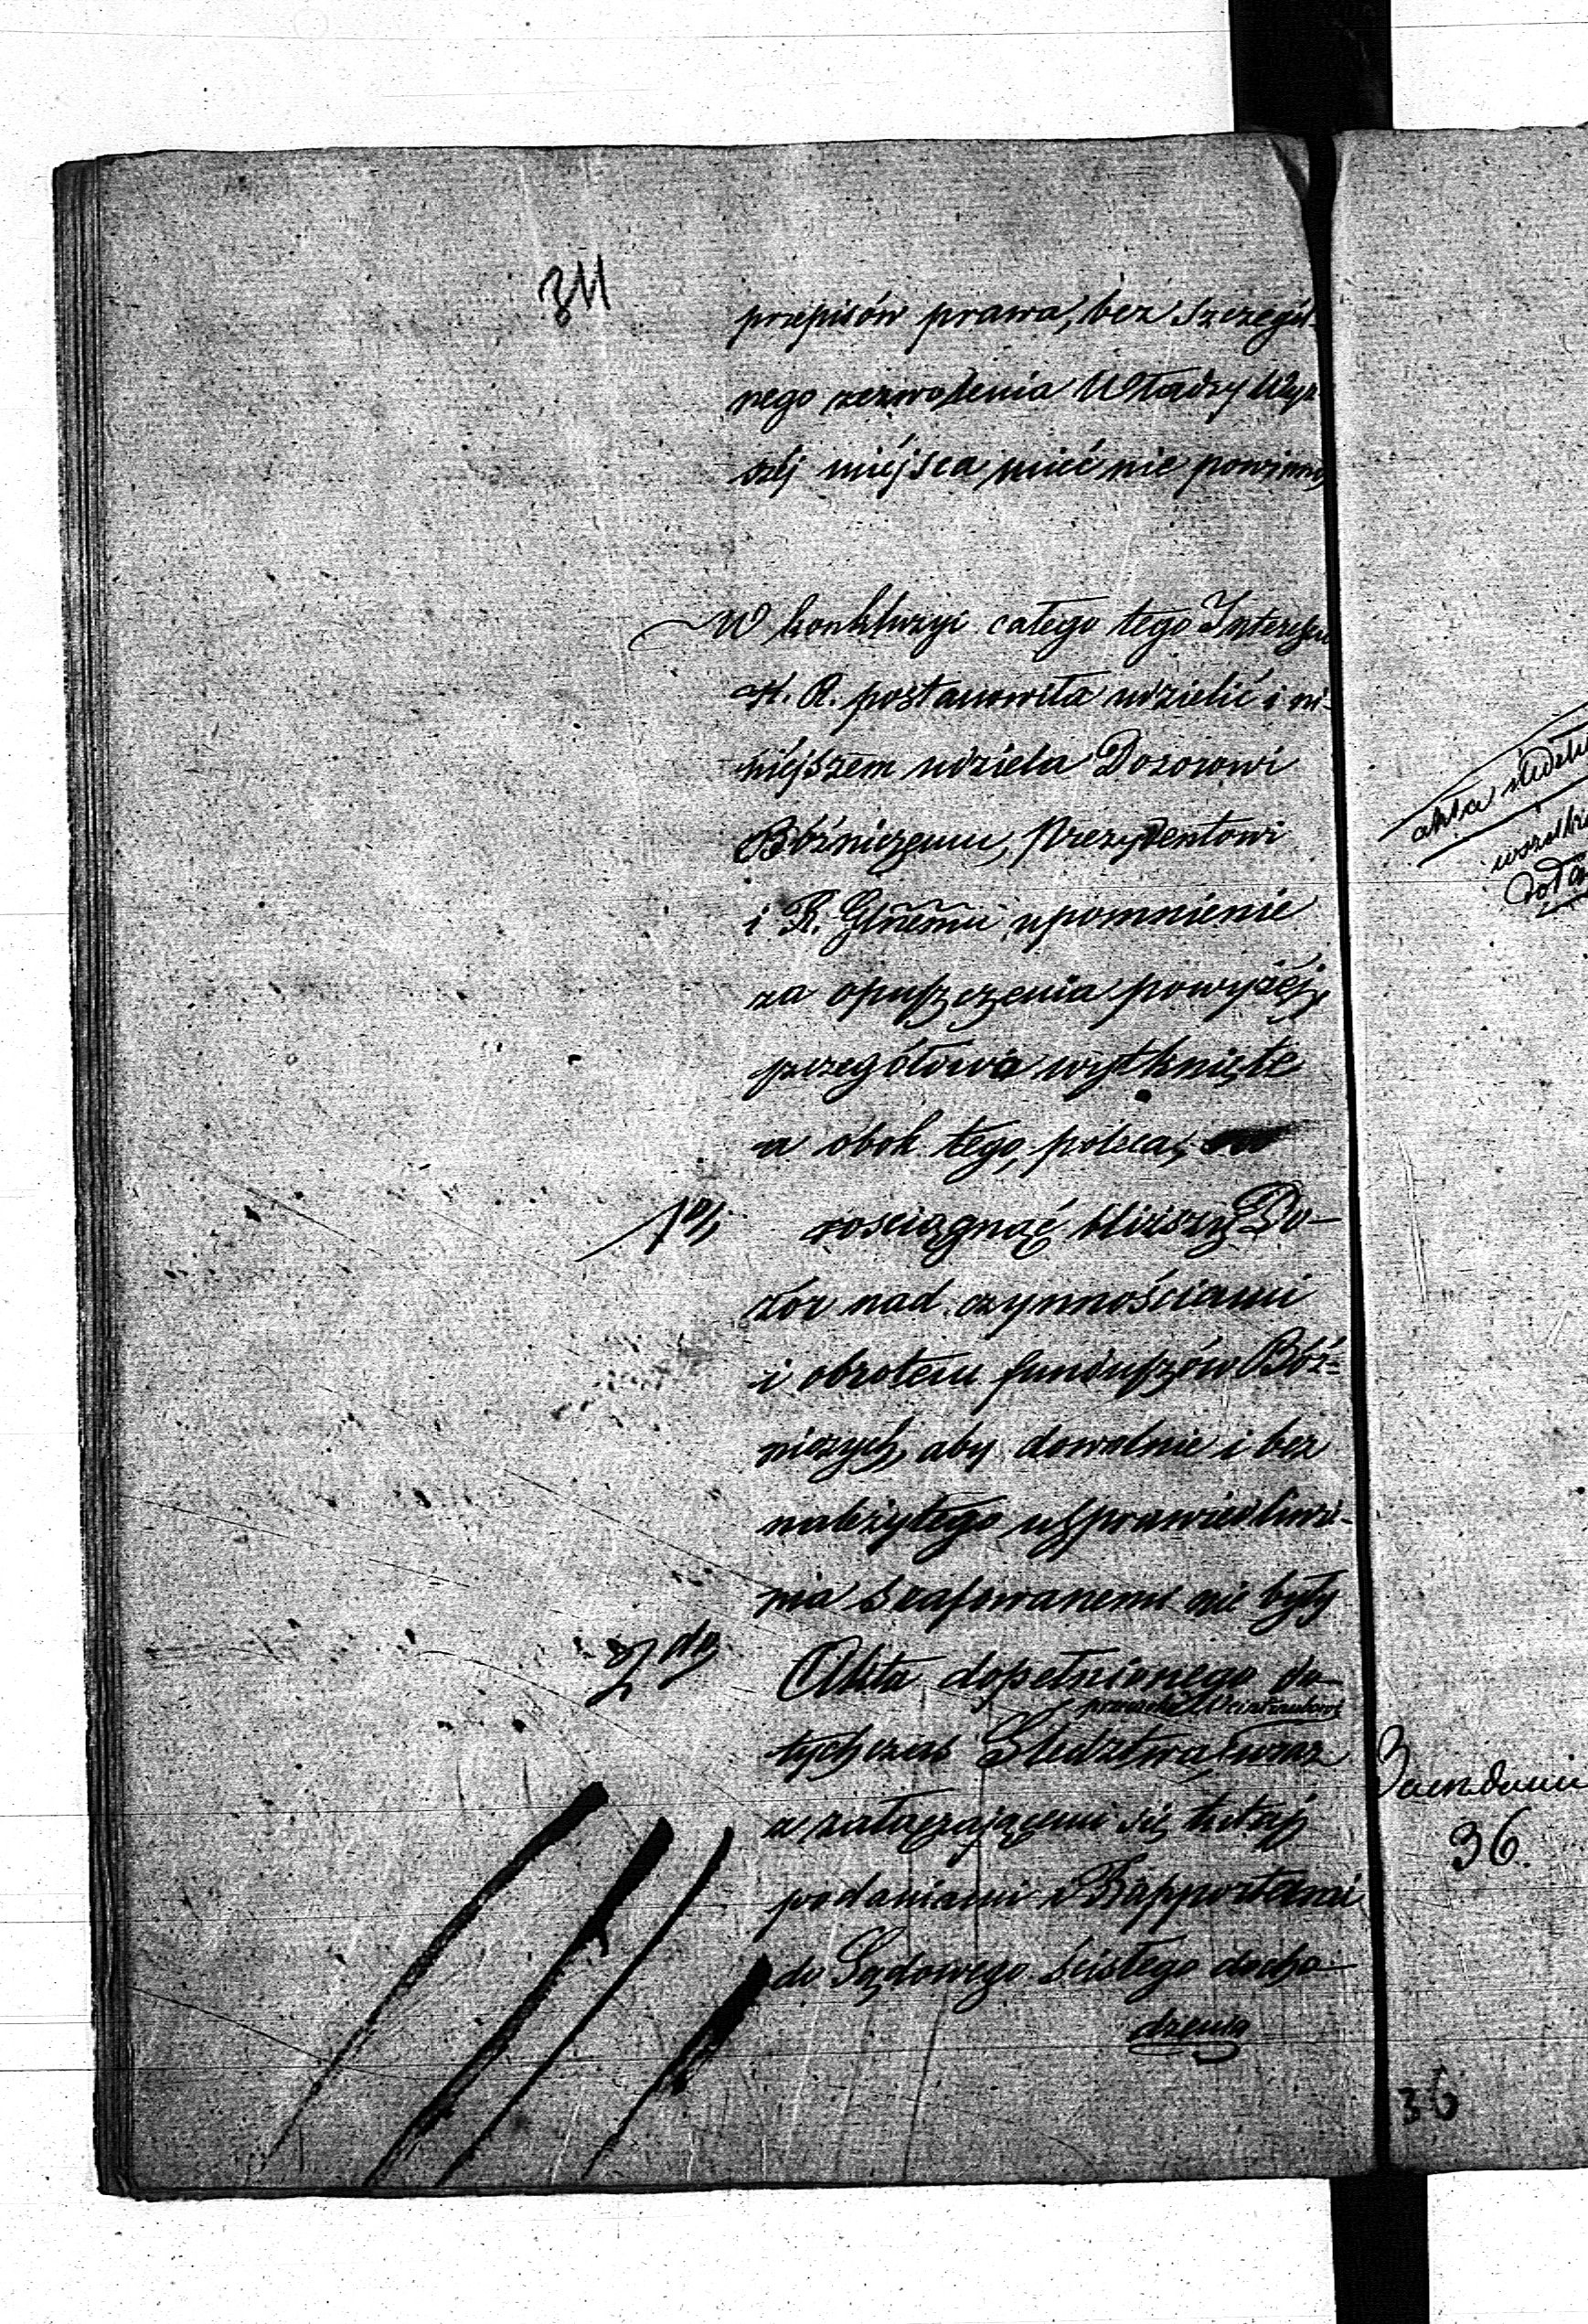 311
przepisów prawa, bez szczegól-
nego zezwolenia Władzy Wyż-
széj miéjsca mieć nie powinno,
W konkluzyi całego tego Interesu
K. R. postanowiła udzielić i ni-
niéjszem udziela Dozorowi
Bóżniczemu, Prezydentowi
i R. Głnemu upomnienie
za opuszczenia powyżéj
szczegółowie wytknięte
a obok tego, poleca,
1o/ rosciągnąć bliższy Do-
zór nad czynnościami
i obrotem funduszów Bóż-
niczych, aby dowolnie i bez
należytego usprawiedliwie-
nia szafowanemi nie były
2do Akta dopełnionego do-
tychczas Sledztwa, wraz
z załączającemi się tutaj
podaniami i Rapportami
do Sądowego ścisłego docho-
dzenia
akta
36.
36